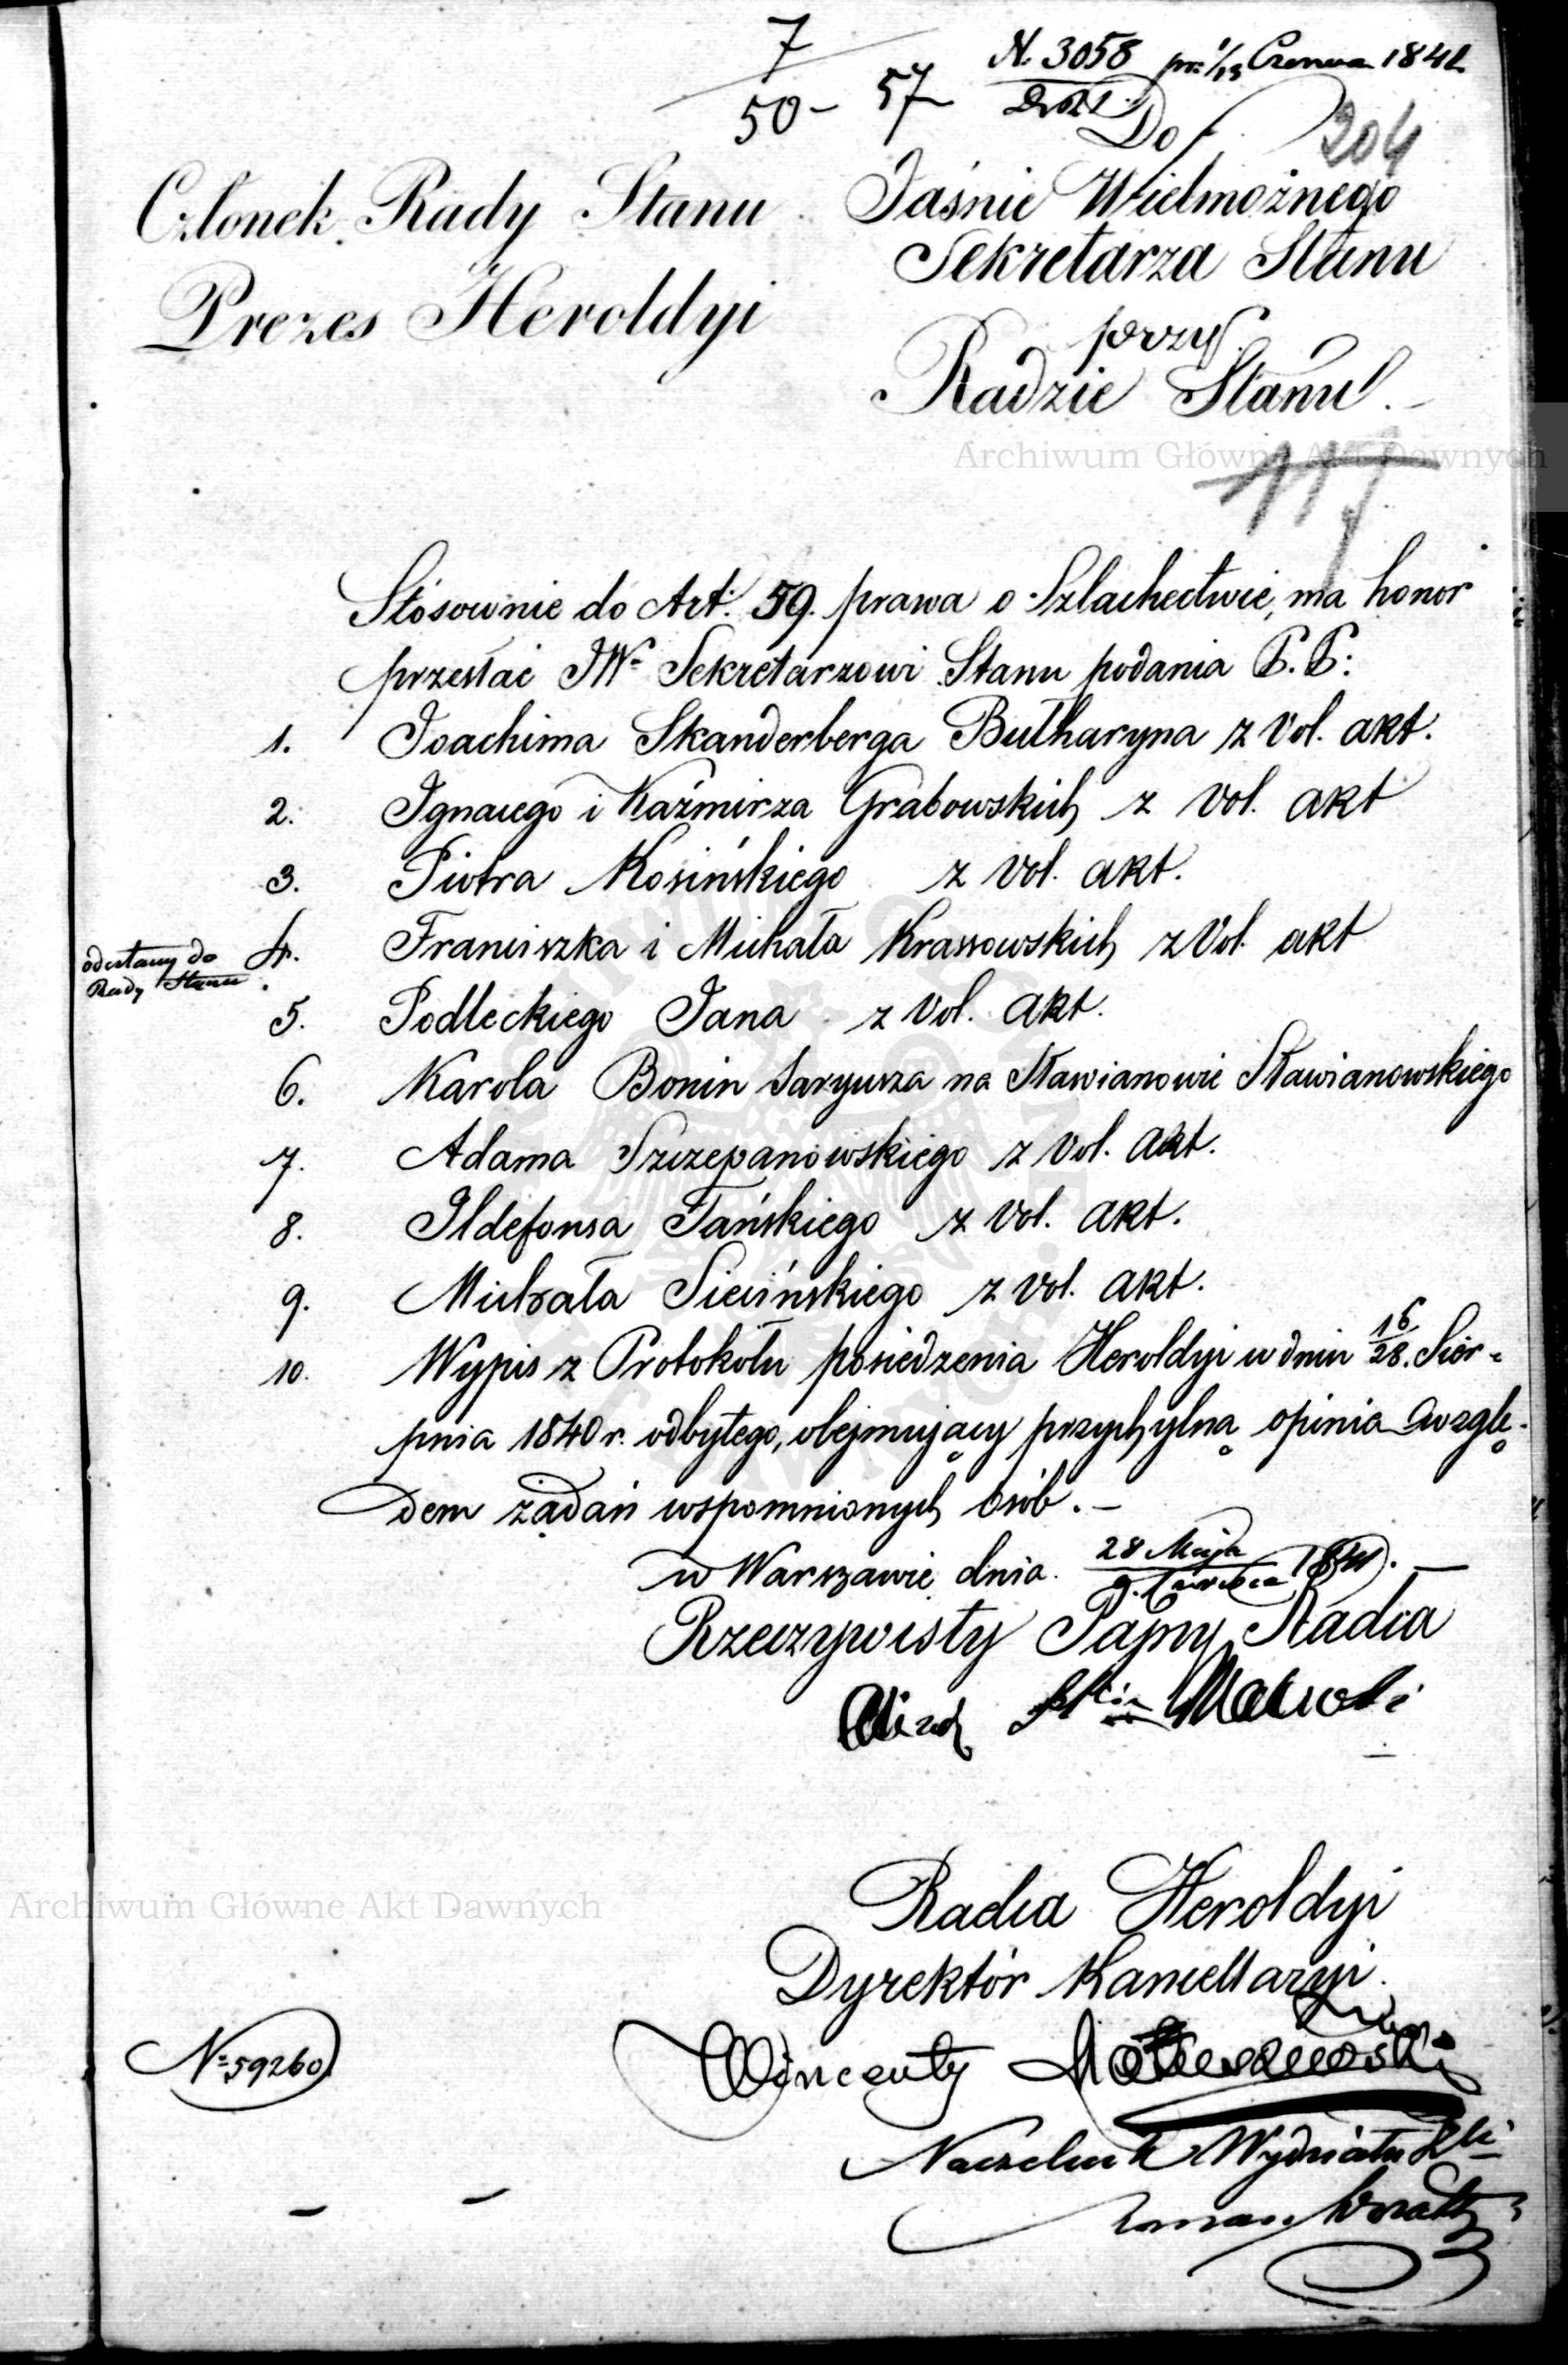 7
50 - 57
N. 3058 pr: 1/13 Czerwca 1841
Do
204
Członek Rady Stanu
Prezes Heroldyi
Jaśnie Wielmożnego
Sekretarza Stanu
przy
Radzie Stanu. -
Archiwum Główne Akt Dawnych
117
Stósownie do Art: 59. prawa o Szlachectwie, ma honor
przesłać JWu Sekretarzowi Stanu podania P.P:
1. Joachima Skanderberga Bułharyna z Vol. akt.
2. Ignacego i Kaźmirza Grabowskich z vol. akt
3. Piotra Kosińskiego z vol. akt.
odesłany do
Rady Stanu
4. Franciszka i Michała Krassowskich z Vol. akt
5. Podleckiego Jana z Vol. akt.
6. Karola Bonin Saryusza na Sławianowie Sławianowskiego
7. Adama Szczepanowskiego z vol. akt.
8. Ildefonsa Tańskiego z vol. akt.
9. Michała Siecińskiego z vol. akt.
10. Wypis z Protokołu posiedzenia Heroldyi w dniu 16/28. Sier-
pnia 1840 r. odbytego, obejmujący przychylną opinią wzglę-
dem żądań wspomnionych osób. -
w Warszawie dnia 28 Maja / 9. Czerwca 1841. -
Rzeczywisty Tajny Radca
Radca Heroldyi
Dyrektór Kancellaryi
Archiwum Główne Akt Dawnych
No 59260
Wincenty
Naczelnik Wydziału